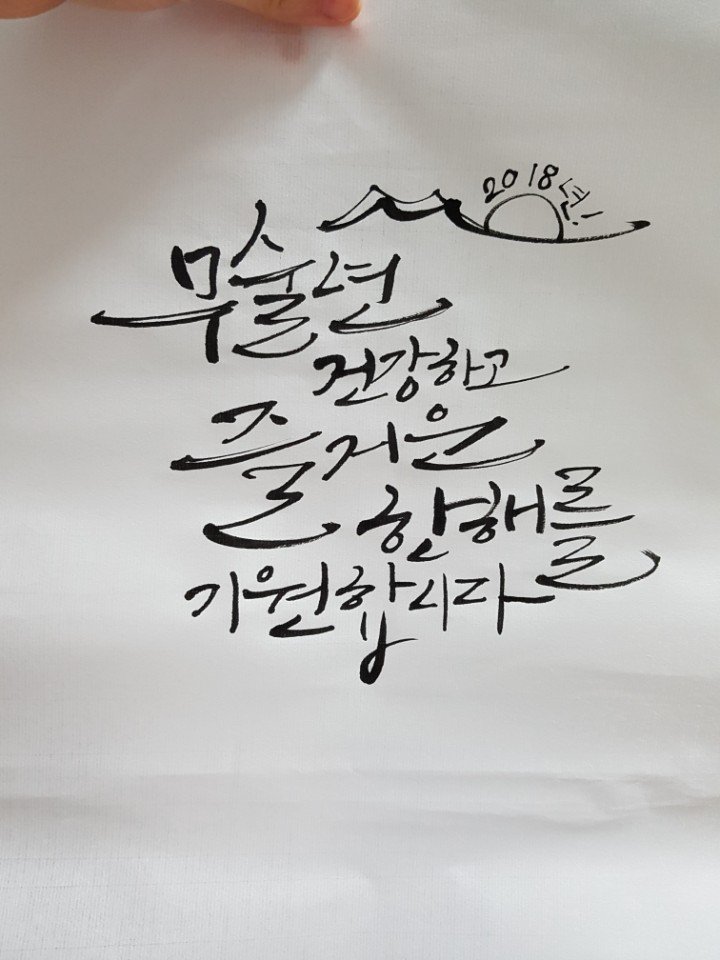 2018년!
무술년
건강하고
즐거운
한해를
기원합시다